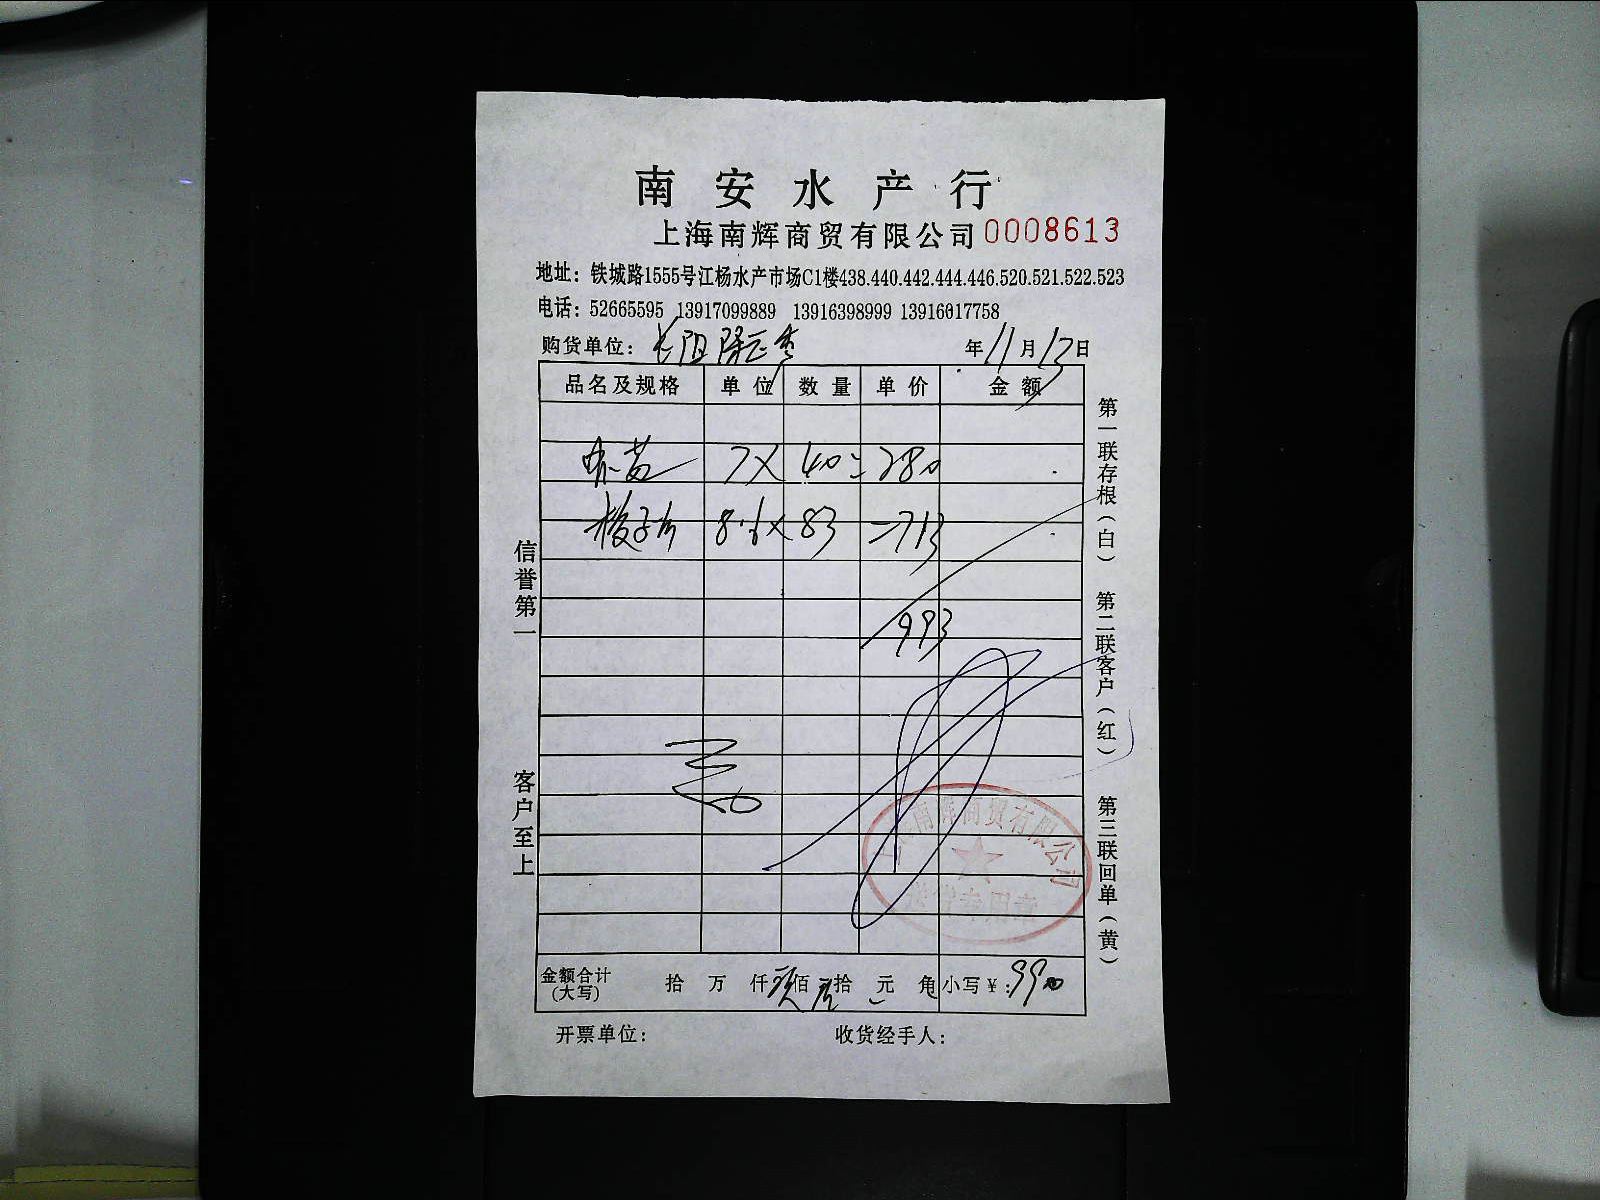 南安水产行
上海南辉商贸有限公司 0008613
地址：铁城路1555号江杨水产市场C1楼438.440.442.444.446.520.521.522.523
电话：52665595 13917099889 13916398999 13916017758
购货单位： 年11月13日
品名及规格 单位 数量 单价 金额
7× 40=280
8.6×83=713
993
信誉第一
客户至上
第一联存根（白） 第二联客户（红） 第三联回单（黄）
南辉商贸有限公司
专用章
金额合计（大写） 拾 万 仟 佰 拾 元 角 小写￥：990
开票单位： 收货经手人：